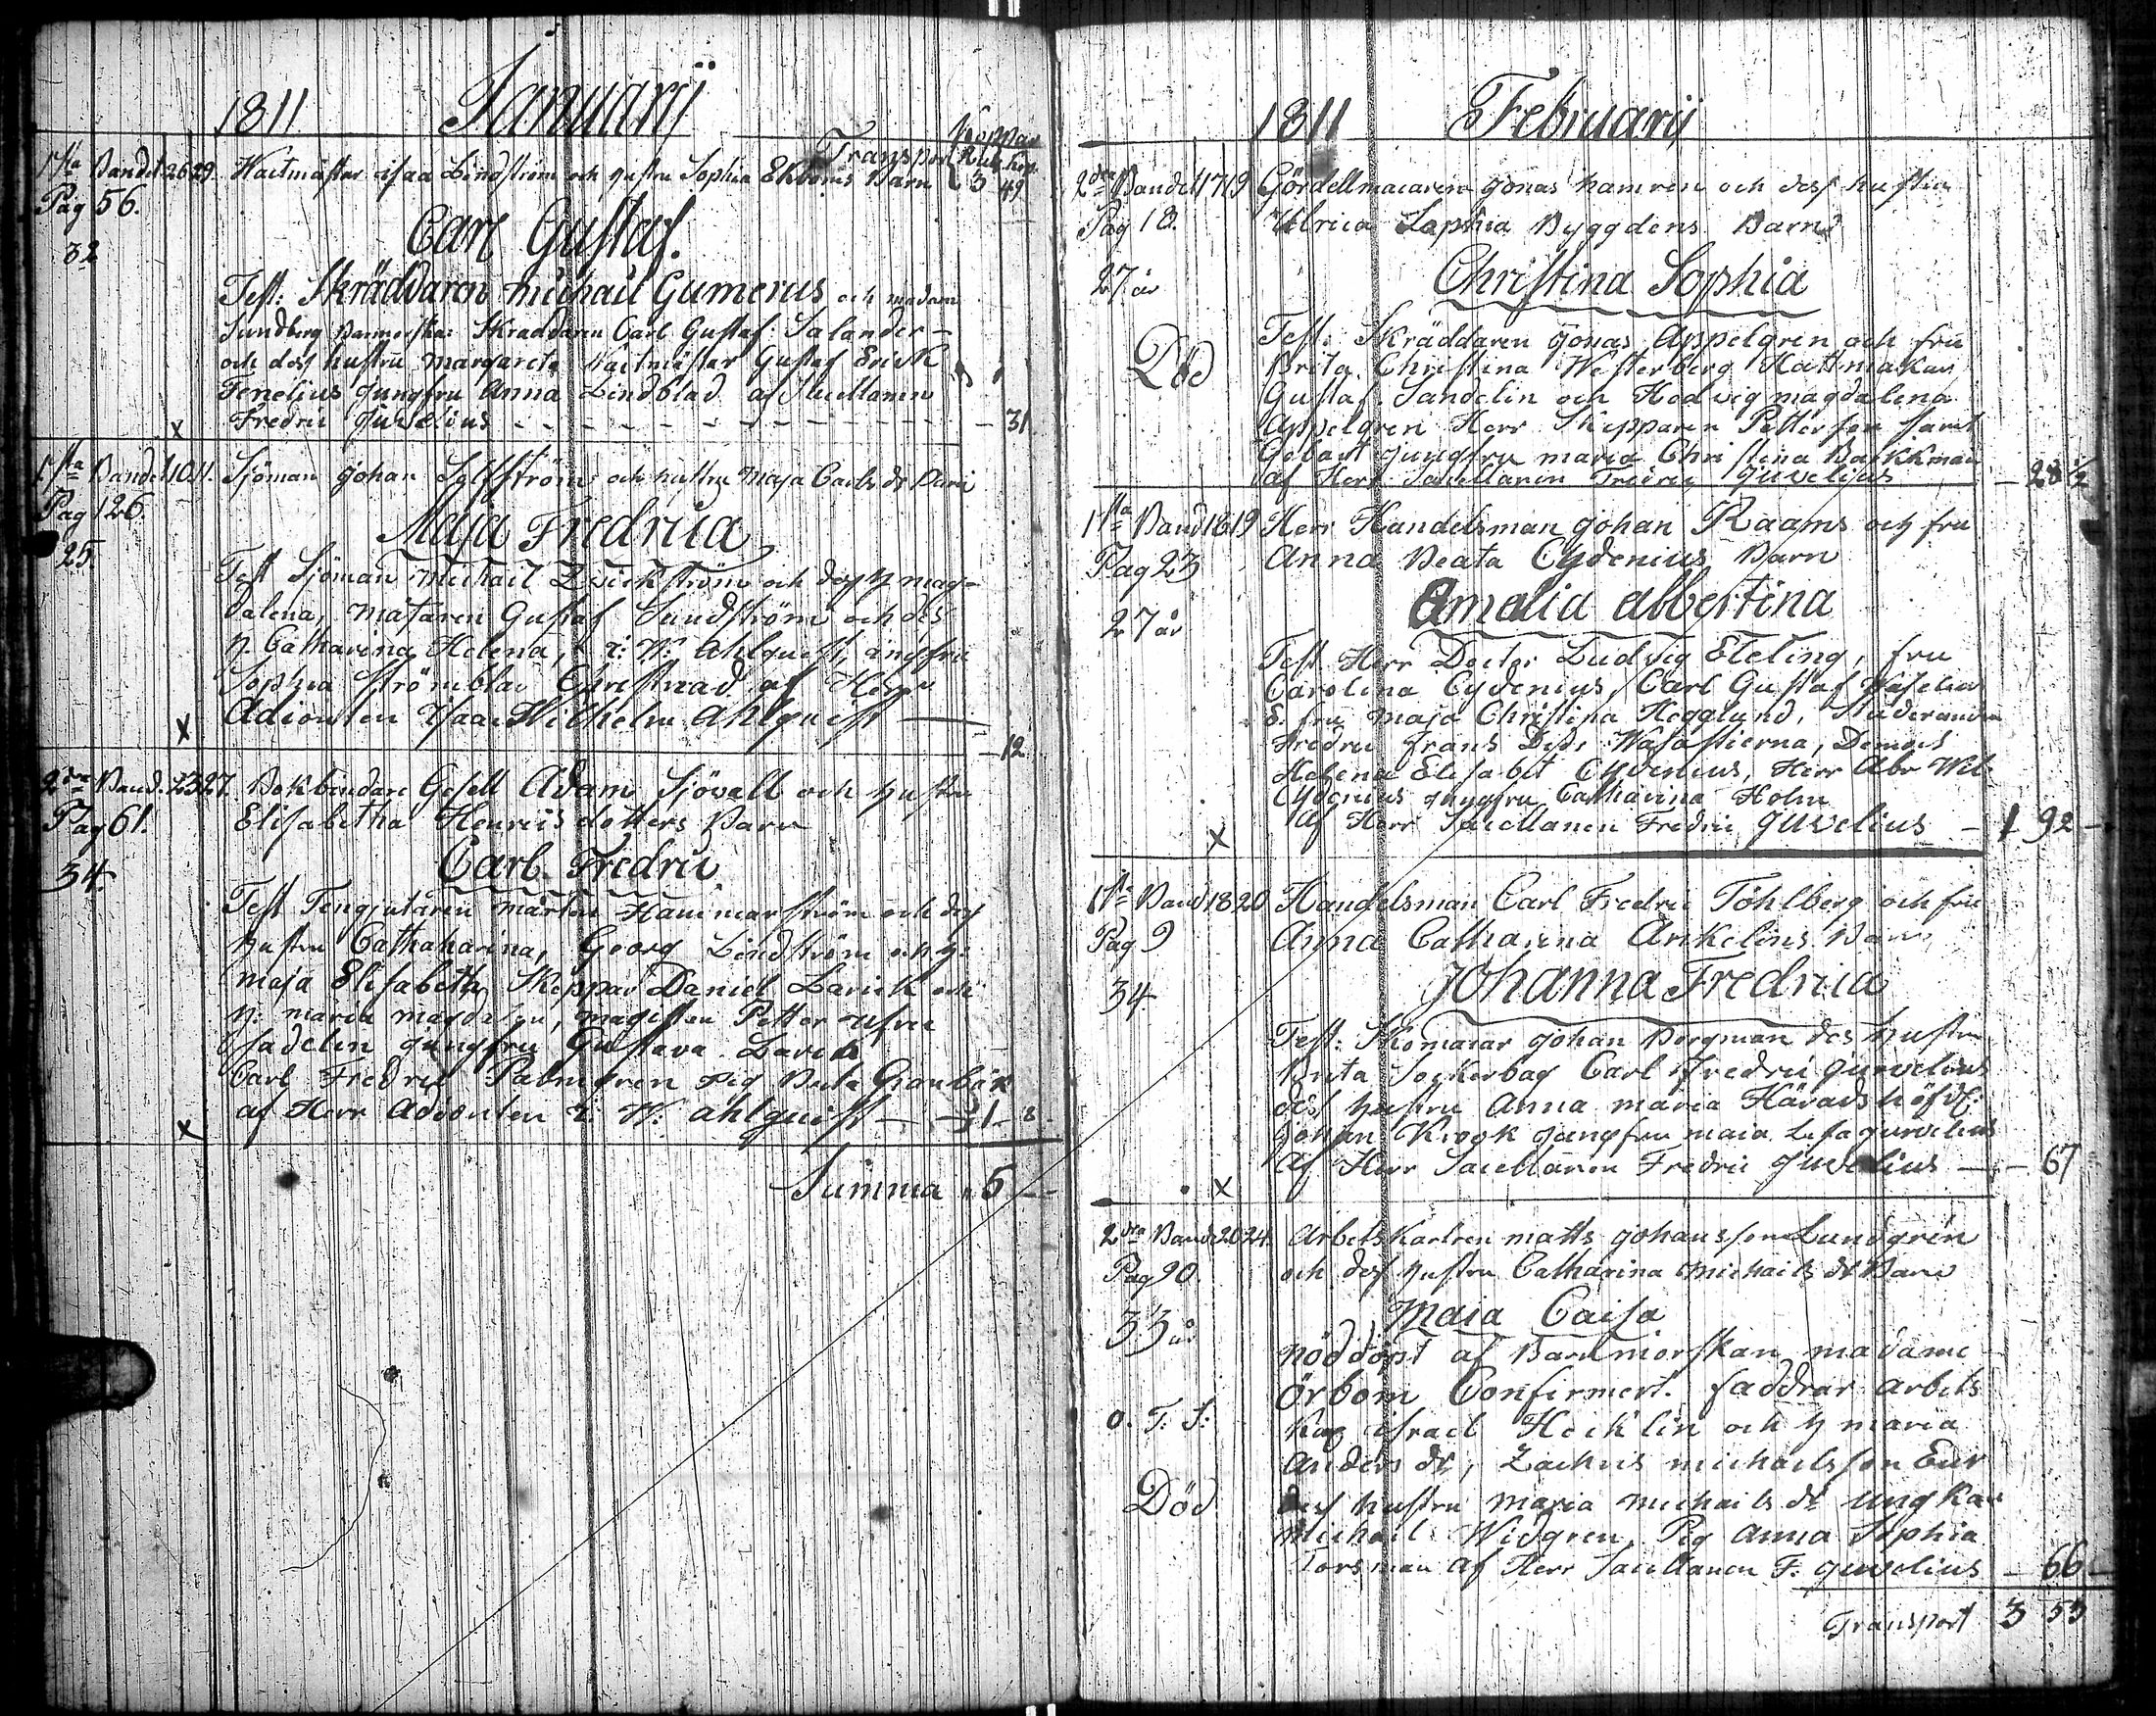 1811 Januarij
Koppar
Transport Rub. kop.
1sta Bandet 26 29. Wacktmästar Isaa Lindström och hustru Sophia Ekboms Barn 3 49
Pag 56.
Carl Gustaf.
32
Test: Skräddaren Michail Gumerus och madam
Sundberg Barmorska: Skraddaren Carl Gustaf: Salander –
och dess hustru Margareta Wacktmästar Gustaf Erick
Fenelius Jungfru Anna Lindblad af Sacellanen
x Fredric Juvelius – 31
1sta Bandet 10 11. Sjöman Johan och hustru Maja Carls dr Barn
Pag 126.
Maja Fredrica
25.
Test Sjöman Michail Wickström och dess h mag-
dalena, Mätaren Gustaf Sundström och des
h. Catharina Helena, I: W: Ahlquist, Jungfru
Sophia Strömblad Christnad af Herr
x Adioncten Isaac Wilhelm Ahlquist – 12
2dra Band. 23 27. Bokbindare Gesell Adam Sjövall och hustru
Pag 61. Elisabetha Henricsdotters Barn
Carl Fredric
34.
Test Tengjutaren Mårten Hammarström och dess
hustru Cathaharina, Georg Lindström och h:
Maja Elisabetha Skeppar Daniel Larick och
h: Maria Magdalena, Magisten Petter
Sadelin Jungfru Gustava Larick
Carl Fredric Palmgren Pig Beata Granbäk
x af Herr Adioncten I: W: Ahlquist – 31 8
Summa 5 –
1811 Februarij
2dra Bandet 17 19 Gördellmacaren Jonas Hamren och dess hustru
Pag 18. Ulrica Sophia Byggdens Barn
27 år Christina Sophia
Test: Skräddaren Jonas Appelgren och fru
Död Brita Christina Westerberg Hattmakar
Gustaf Sandelin och Hedvig Magdalena
Appelgren Herr Skepparen Petterson samt
jungfru Maria Christina Backman
af Herr Sacellanen Fredric Juvelius – 28 1/2
1sta Band 16 19 Herr Handelsman Johan Raams och fru
Pag 23 Anna Beata Cydenius Barn
Amalia Albertina
27 år
Test Herr Doctor Ludvig Eteling, fru
Carolina Cydenius, Carl Gustaf
fru Maja Christina Hegglund, Studeranden
Fredric Frans Wasastierna, Demois
Helena Elisabet Cydenius, Herr Abr Wil
Cydenius jungfru Catharina Holm
x af Herr Sacellanen Fredric Juvelius – 1 92 –
1sta Band 18 20 Handelsman Carl Fredric Töhlberg och fru
Pag 9 Anna Catharina Arkelins Barn
Johanna Fredrica
34.
Test: Skomacar Johan Bergman des hustru
Brita Carl Fredric Jurvelius
dess hustru Anna Maria Häradshöfd:
Johan Krook Jungfru Maia Lisa Jurvelius
x af Herr Sacellanen Fredric Juvelius – – 67
2dra Band 20 24. Arbets Karlren Matts Johansson Lundgren
Pag 90. och dess hustru Catharina Michails dr Barn
Maia Caisa
33 år
nöddöpt af Barnmorskan Madame
Örbom Confirmert. faddrar arbets
0. T. S: Kar Israel Hecklin och h Maria
Anders dr, Zachris Michailsson Eur
Död dess hustru Maria Michails dr ung Kar
Michail Widgren, Pig Anna Sophia
Torsman af Herr Sacellanen F. Juvelius – 66 –
Transport 3 53